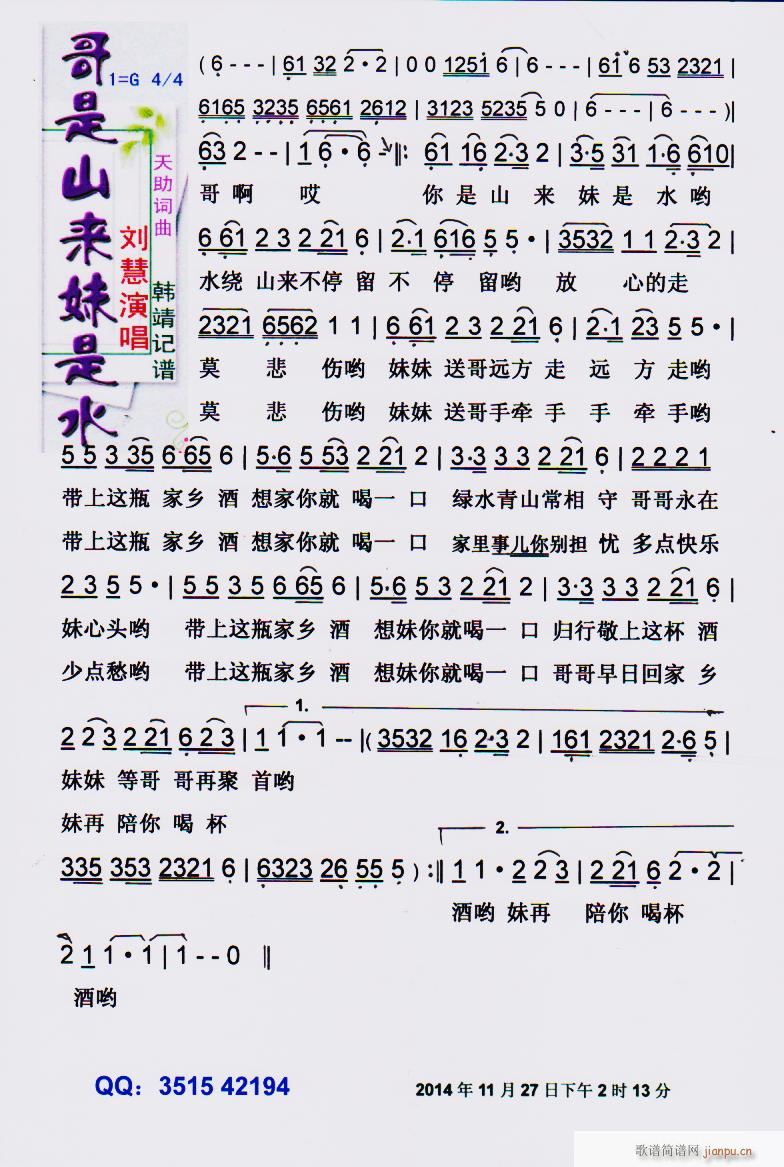 哥是山来妹是水
1=G 4/4
天助词曲
刘慧演唱
韩靖记谱
( 6 - - - | 61 32 2 · 2 | 0 0 1251 6 | 6 - - - | 61 6 53 2321 |
6165 3235 6561 2612 | 3123 5235 5 0 | 6 - - - | 6 - - - )|
63 2 - - | 1 6 · 6 - ‖: 61 16 2·3 2 | 3·5 31 1·6 610 |
哥 啊 哎 你 是 山 来 妹 是 水 哟
6 61 2 3 2 221 6 | 2·1 616 5 5 · | 3532 1 1 2·3 2 |
水绕 山来不停 留 不 停 留哟 放 心的走
2321 6562 1 1 | 6 61 2 3 2 221 6 | 2·1 23 5 5 · |
莫 悲 伤哟 妹妹 送哥远方 走 远 方 走哟
莫 悲 伤哟 妹妹 送哥手牵 手 手 牵 手哟
5 5 3 35 6 65 6 | 5·6 5 53 2 221 2 | 3·3 3 3 2 21 6 | 2 2 2 1
带上这瓶 家乡 酒 想家你就 喝一 口 绿水青山常相 守 哥哥永在
带上这瓶 家乡 酒 想家你就 喝一 口 家里事儿你别担 忧 多点快乐
2 3 5 5 · | 5 5 3 5 6 65 6 | 5·6 5 3 2 21 2 | 3·3 3 3 2 21 6 |
妹心头哟 带上这瓶家乡 酒 想妹你就喝一 口 归行敬上这杯 酒
少点愁哟 带上这瓶家乡 酒 想妹你就喝一 口 哥哥早日回家 乡
1.
2 2 3 2 21 6 2 3 | 1 1 · 1 - - |( 3532 16 2·3 2 | 161 2321 2·6 5 |
妹妹 等哥 哥再聚 首哟
妹再 陪你 喝 杯
2.
335 353 2321 6 | 6323 26 55 5 ) :‖ 1 1 · 2 2 3 | 2 21 6 2 · 2 |
酒哟 妹再 陪你 喝杯
2 1 1 · 1 | 1 - - 0 ‖
酒哟
QQ：3515 42194
2014 年 11 月 27 日下午 2 时 13 分
歌谱简谱网
jianpu.cn